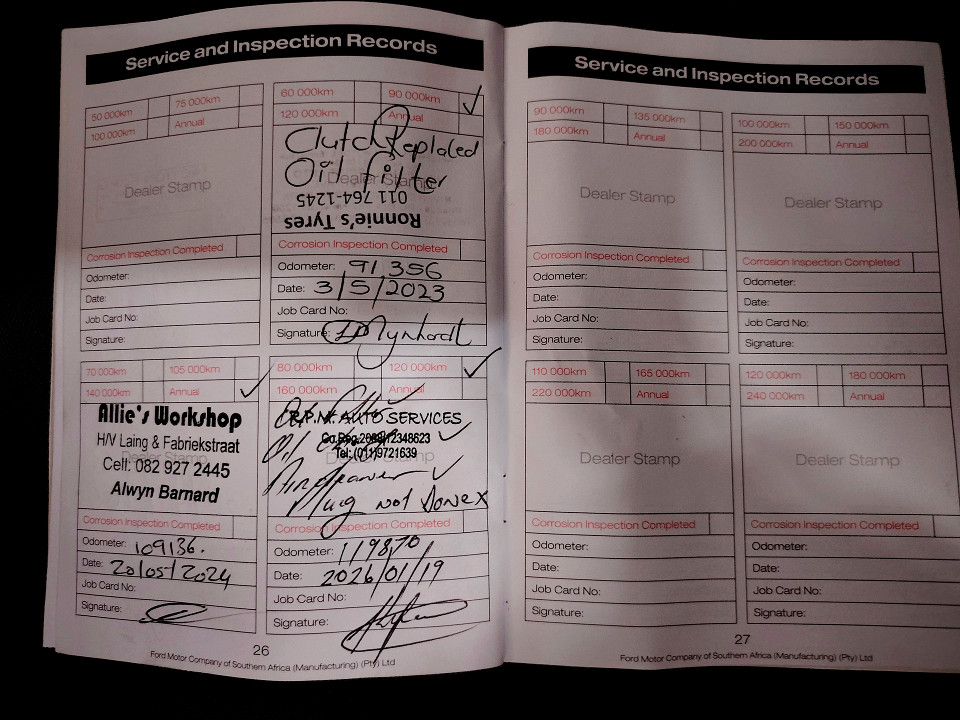 Service and Inspection Records
50 000km 75 000km
100 000km Annual
Dealer Stamp
Corrosion Inspection Completed
Odometer:
Date:
Job Card No:
Signature:
60 000km 90 000km ✓
120 000km Annual
Clutch Replaced
Oil filter
Dealer Stamp
011 764-1245
Ronnie's Tyres
Corrosion Inspection Completed
Odometer: 91 356
Date: 3/5/2023
Job Card No:
Signature:
70 000km 105 000km
140 000km Annual ✓
Allie's Workshop
H/V Laing & Fabriekstraat
Cell: 082 927 2445
Alwyn Barnard
Corrosion Inspection Completed
Odometer: 109136.
Date: 20/05/2024
Job Card No:
Signature:
80 000km 120 000km ✓
160 000km Annual
R.P.M. AUTO SERVICES
Tel: (011)9721639
Plug not Done x
Corrosion Inspection Completed
Odometer: 119870
Date: 2026/01/19
Job Card No:
Signature:
26
Ford Motor Company of Southern Africa (Manufacturing) (Pty) Ltd
Service and Inspection Records
90 000km 135 000km
180 000km Annual
Dealer Stamp
Corrosion Inspection Completed
Odometer:
Date:
Job Card No:
Signature:
100 000km 150 000km
200 000km Annual
Dealer Stamp
Corrosion Inspection Completed
Odometer:
Date:
Job Card No:
Signature:
110 000km 165 000km
220 000km Annual
Dealer Stamp
Corrosion Inspection Completed
Odometer:
Date:
Job Card No:
Signature:
120 000km 180 000km
240 000km Annual
Dealer Stamp
Corrosion Inspection Completed
Odometer:
Date:
Job Card No:
Signature:
27
Ford Motor Company of Southern Africa (Manufacturing) (Pty) Ltd